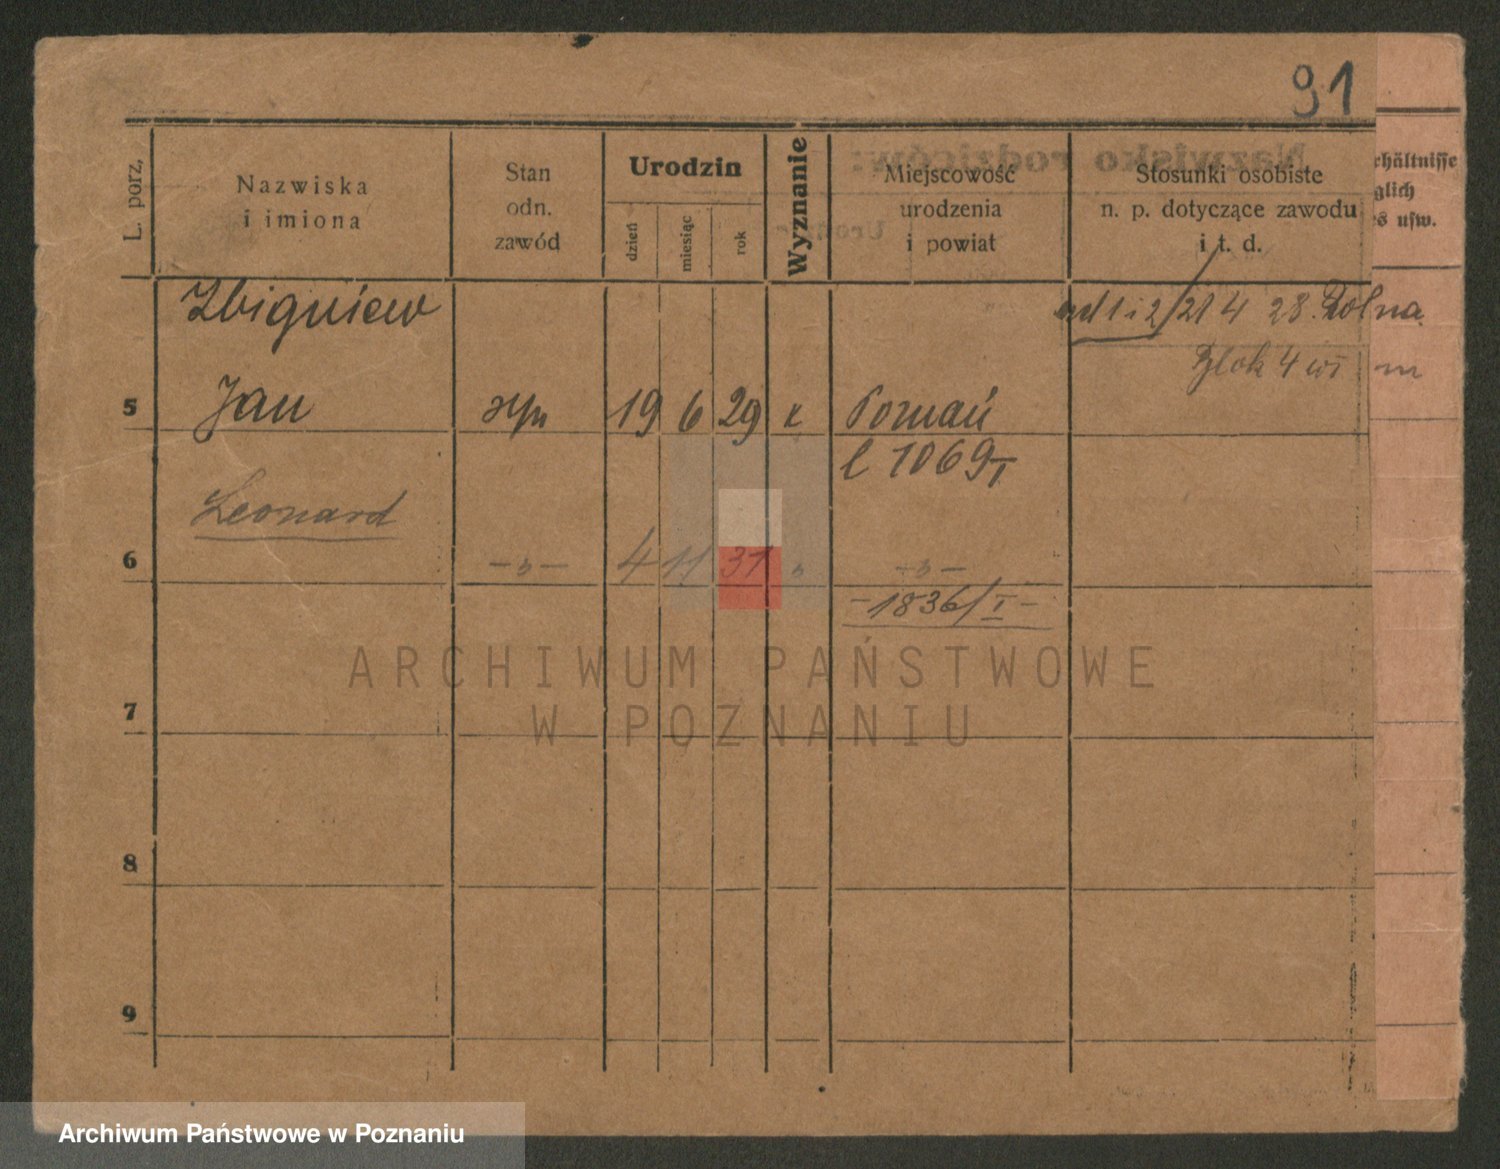 91
L. porz.
Nazwiska
i imiona
Stan
odn.
zawód
Urodzin
dzień
miesiąc
rok
Wyznanie
Miejscowość
urodzenia
i powiat
Stosunki osobiste
n. p. dotyczące zawodu
i t. d.
rhältnisse
glich
es usw.
Nazwisko rodziców:
Zbigniew
ad 1 i 2/21 4 28. Rolna
Blok 4 m
5 Jan syn 19 6 29 k Poznań
l 1069 I
Leonard
6 -„- 4 11 31 „ -„-
-1836/I-
7
8
9
ARCHIWUM PAŃSTWOWE
W POZNANIU
Archiwum Państwowe w Poznaniu